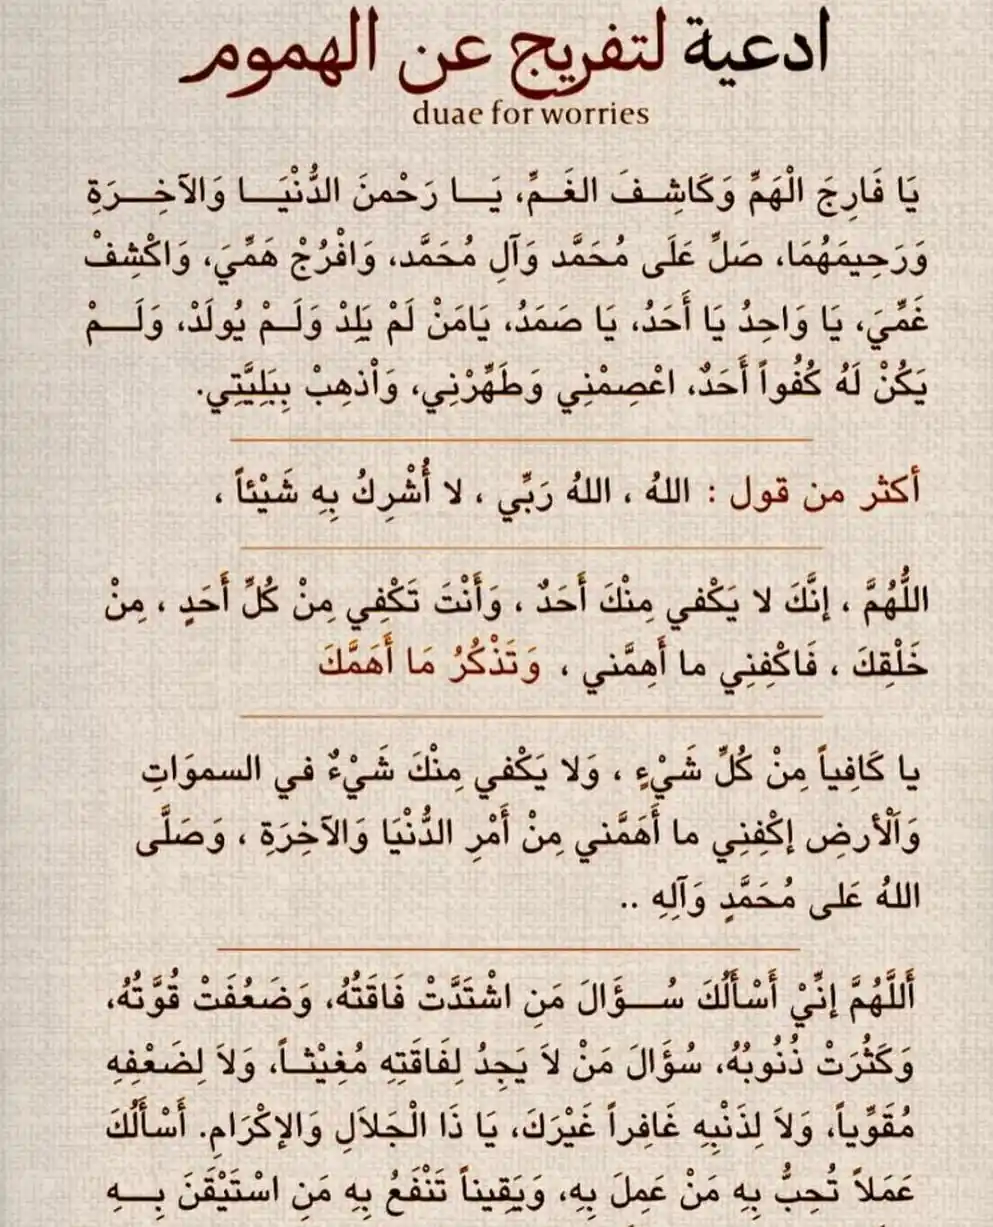 ادعية لتفريج عن الهموم
duae for worries
يَا فَارِجَ الْهَمِّ وَكَاشِـفَ الغَـمِّ، يَـــا رَحْمنَ الدُّنْيَـــا وَالآخِـــرَةِ
وَرَحِيمَهُمَا، صَلِّ عَلَى مُحَمَّد وَآلِ مُحَمَّد، وَافْرُجْ هَمِّيَ، وَاكْشِفْ
غَمِّيَ، يَا وَاحِدُ يَا أَحَدُ، يَا صَمَدُ، يَامَنْ لَمْ يَلِدْ وَلَـمْ يُولَدْ، وَلَـــمْ
يَكُنْ لَهُ كُفُواً أَحَدٌ، اعْصِمْنِي وَطَهِّرْنِي، وَاْذهِبْ بِبَلِيَّتِي.
أكثر من قول : اللهُ ، اللهُ رَبِّي ، لا أُشْرِكُ بِهِ شَيْئاً ،
اللُّهُمَّ ، إنَّكَ لا يَكْفي مِنْكَ أَحَدٌ ، وَأَنْتَ تَكْفِي مِنْ كُلِّ أَحَدٍ ، مِنْ
خَلْقِكَ ، فَاكْفِنِي ما أَهِمَّني ، وَتَذْكُرُ مَا أَهَمَّكَ
يا كَافِياً مِنْ كُلِّ شَيْءٍ ، وَلا يَكْفي مِنْكَ شَيْءٌ في السموَاتِ
وَاَلْأرضِ إكْفِنِي ما أَهَمَّني مِنْ أَمْرِ الدُّنْيَا وَالآخِرَةِ ، وَصَلَّى
اللهُ عَلى مُحَمَّدٍ وَآلِهِ ..
أَللَّهُمَّ إنِّيْ أَسْأَلُكَ سُـــؤَالَ مَنِ اشْتَدَّتْ فَاقَتُهُ، وَضَعُفَتْ قُوَّتُهُ،
وَكَثُرَتْ ذُنُوبُهُ، سُؤَالَ مَنْ لاَ يَجِدُ لِفَاقَتِهِ مُغِيْثـاً، وَلاَ لِضَعْفِهِ
مُقَوِّياً، وَلاَ لِذَنْبِهِ غَافِراً غَيْرَكَ، يَا ذَا الْجَلاَلِ وَالإكْرَامِ. أَسْأَلُكَ
عَمَلاً تُحِبُّ بِهِ مَنْ عَمِلَ بِهِ، وَيَقِيناً تَنْفَعُ بِهِ مَنِ اسْتَيْقَنَ بِـــهِ